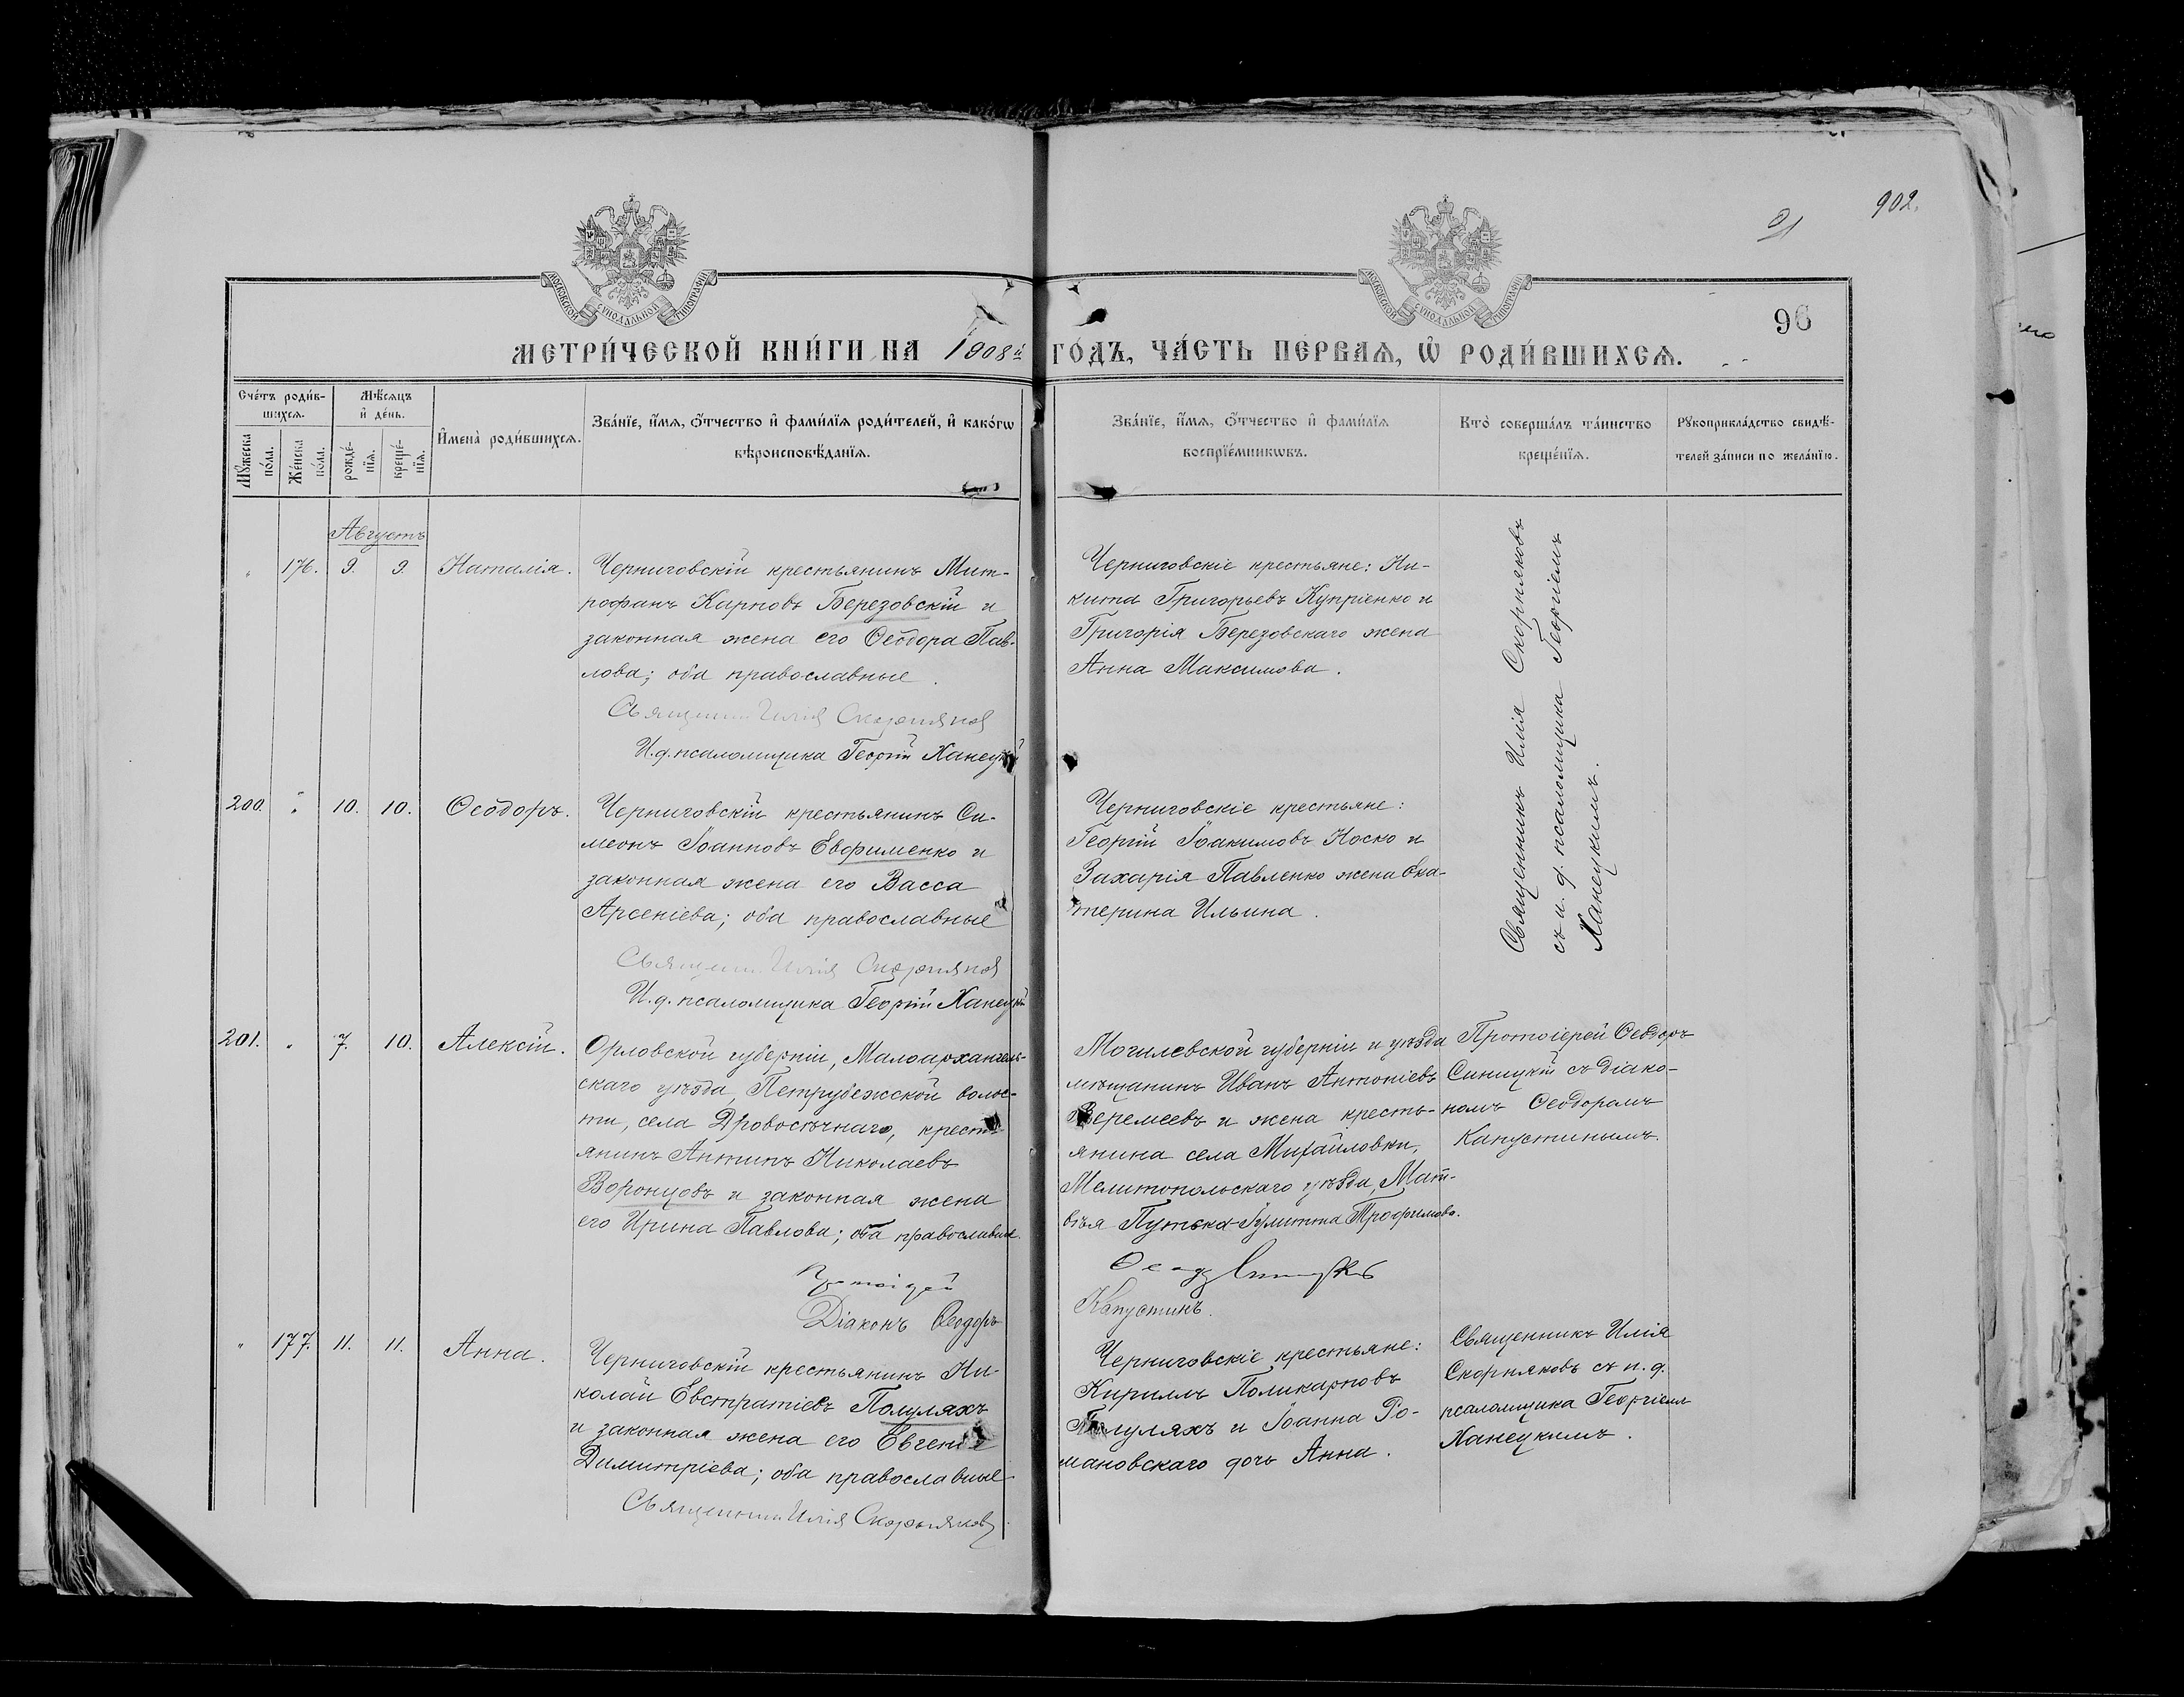 902.
96
МОСКОВСКОЙ СѴНОДАЛЬНОЙ ТИПОГРАФІИ
МОСКОВСКОЙ СѴНОДАЛЬНОЙ ТИПОГРАФІИ
МЕТРИ́ЧЕСКОЙ КНИ́ГИ НА 1908й ГО́ДЪ, ЧА́СТЬ ПЕ́РВАѦ, Ѡ҆ РОДИ́ВШИХСѦ.
Счѐтъ роди́в-
шихсѧ.
Мꙋ́жеска
по́ла.
Же́нска
по́ла.
Мѣ́сѧцъ
и҆ де́нь.
рожде́-
нїѧ.
креще́-
нїѧ.
И҆мена̀ роди́вшихсѧ.
Зва́нїе, и҆́мѧ, ѻ҆́тчество и҆ фами́лїѧ роди́телей, и҆ како́гѡ
вѣроисповѣ́данїѧ.
Зва́нїе, и҆́мѧ, ѻ҆́тчество и҆ фами́лїѧ
воспрїе́мникѡвъ.
Кто̀ соверша́лъ та́инство
креще́нїѧ.
Рꙋкоприкла́дство свидѣ́-
телей за́писи по жела́нїю.
Августъ
" 176. 9. 9. Наталія.
Черниговскій крестьянинъ Мит-
рофанъ Карповъ Березовскій и
законная жена его Ѳеодора Пав-
лова; оба православные.
Священни Илія Скорняков
И.д.псаломщика Георгій Ханецкій
Черниговскіе крестьяне: Ни-
кита Григорьевъ Купріенко и
Григорія Березовскаго жена
Анна Максимова.
Священникъ Илія Скорняковъ
съ и.д. псаломщика Георгіемъ
Ханецкимъ.
200. " 10. 10. Ѳеодоръ.
Черниговскій крестьянинъ Си-
меонъ Іоанновъ Евфименко и
законная жена его Васса
Арсеніева; оба православные
Священни Илія Скорняков
И.д.псаломщика Георгій Ханецкій
Черниговскіе крестьяне:
Георгій Іоакимовъ Носко и
Захарія Павленко жена Ека-
терина Ильина.
201. " 7. 10. Алексій.
Орловской губерніи, Малоархангель-
скаго уѣзда, Петрубежской волос-
ти, села Дровосѣчнаго, кресть-
янинъ Антипъ Николаевъ
Воронцовъ и законная жена
его Ирина Павлова; оба православные.
Протоіерей
Діаконъ Ѳеодоръ
Могилевской губерніи и уѣзда
мѣщанинъ Иванъ Антоніевъ
Веремеевъ и жена кресть-
янина села Михайловки,
Мелитопольскаго уѣзда, Мат-
вѣя Путька Іулитта Трофимова.
Ѳеодоръ Синицкій
Капустинъ.
Протоіерей Ѳеодоръ
Синицкій съ діако-
номъ Ѳеодоромъ
Капустинымъ.
" 177. 11. 11. Анна.
Черниговскій крестьянинъ Ни-
колай Евстратіевъ Полуляхъ
и законная жена его Евгенія
Димитріева; оба православные
Священни Илія Скорняковъ
Черниговскіе крестьяне:
Кириллъ Поликарповъ
Полуляхъ и Іоанна Ро-
мановскаго дочь Анна.
Священникъ Илія
Скорняковъ съ и.д.
псаломщика Георгіемъ
Ханецкимъ.